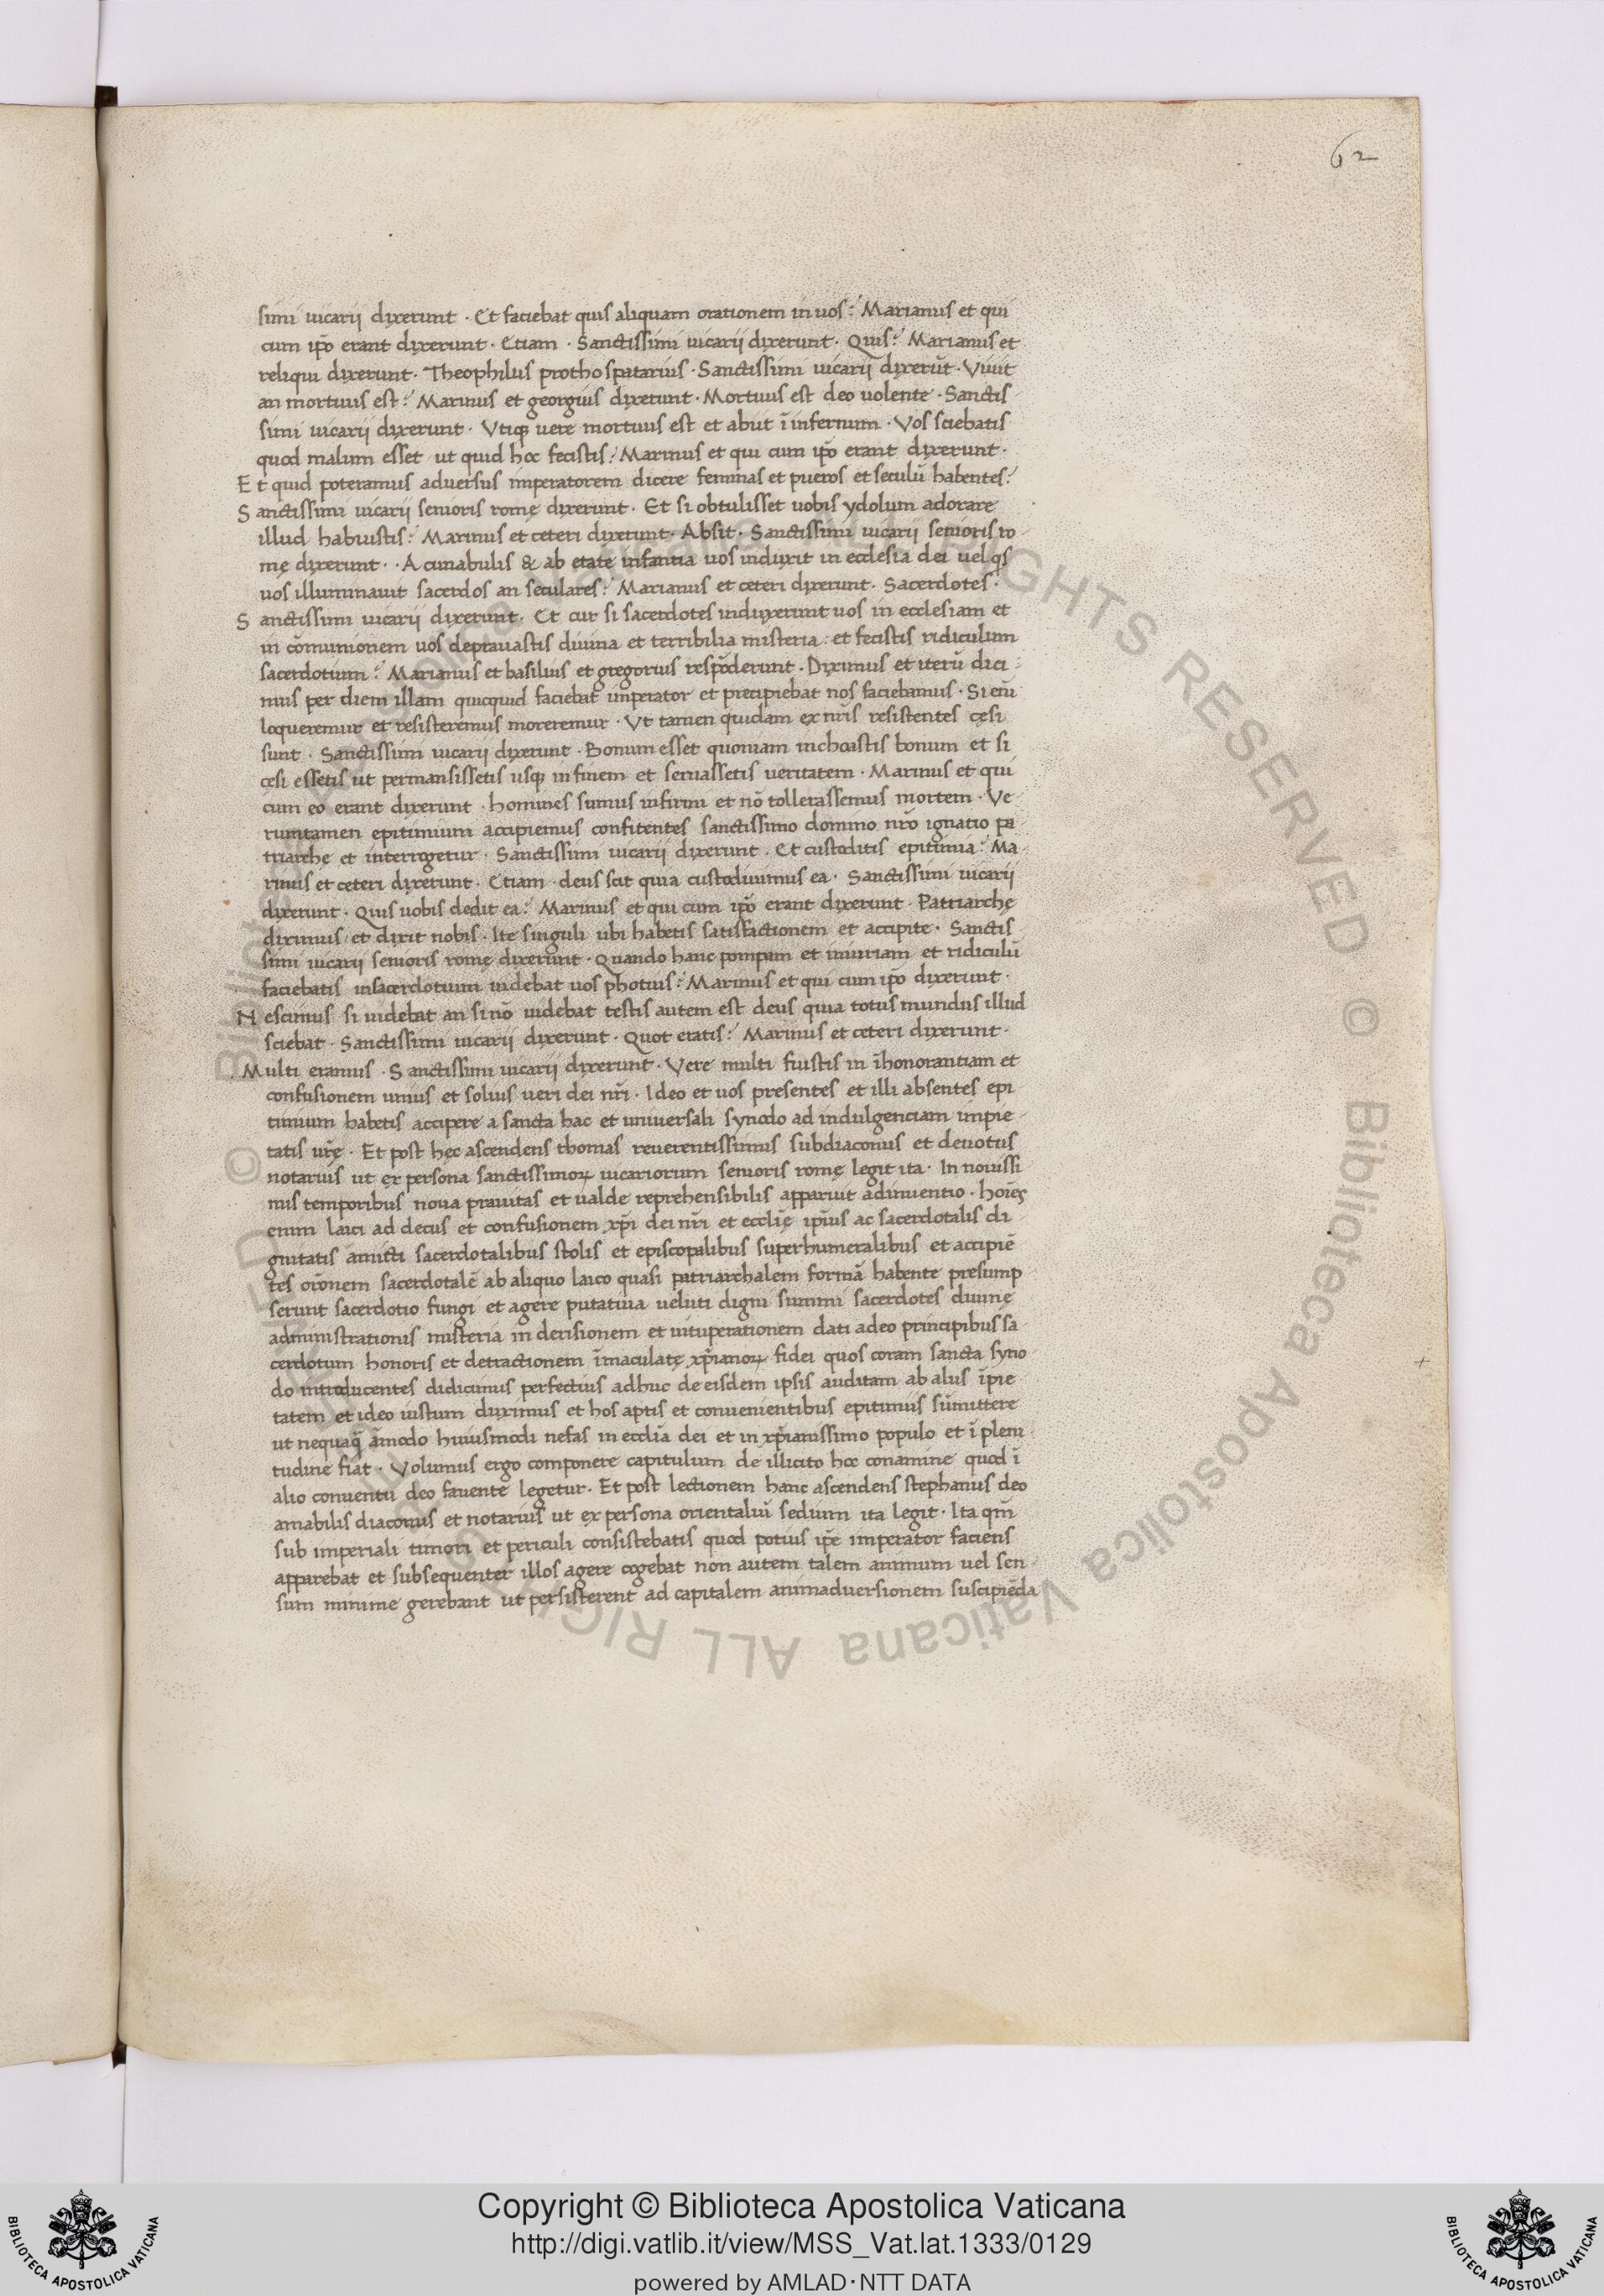 62
simi uicarij dixerunt · Et faciebat quis aliquam orationem in uos? Marianus et qui
cum ip̄o erant dixerunt · Etiam · Sanctissimi uicarij dixerunt · Quis? Marianus et
reliqui dixerunt · Theophilus protho spatarius · Sanctissimi uicarij dixerūt · Viuit
an mortuus est? Marinus et georgius dixerunt · Mortuus est deo uolente · Sanctis
simi uicarij dixerunt · Vtiqꝫ uere mortuus est et abiit ī infernum · Vos sciebatis
quod malum esset ut quid hoc fecistis? Marinus et qui cum ip̄o erant dixerunt ·
Et quid poteramus aduersus imperatorem dicere feminas et pueros et seculū habentes?
Sanctissimi uicarij senioris romę dixerunt · Et si obtulisset uobis ydolum adorare
illud habuistis? Marinus et ceteri dixerunt · Absit · Sanctissimi uicarij senioris ro
mę dixerunt · A cunabulis & ab etate infantia uos induxit in ecclesia dei uel qs
uos illuminauit sacerdos an seculares? Marianus et ceteri dixerunt · Sacerdotes ·
Sanctissimi uicarij dixerunt · Et cur si sacerdotes induxerunt uos in ecclesiam et
in cōmunionem uos deprauastis diuina et terribilia misteria : et fecistis ridiculum
sacerdotum? Marianus et basilius et gregorius respōderunt · Diximus et iterū dici
mus per diem illam quicquid faciebat imperator et precipiebat nos faciebamus · Si eni̅
loqueremur et resisteremus moreremur · Vt tamen quidam ex nr̄is resistentes cęsi
sunt · Sanctissimi uicarij dixerunt · Bonum esset quoniam inchoastis bonum et si
cęsi essetis ut permansissetis usqꝫ in finem et seruassetis ueritatem · Marinus et qui
cum eo erant dixerunt · homines sumus infirmi et nō tollerassemus mortem · Ve
runtamen epitimium accipiemus confitentes sanctissimo domino nr̄o ignatio pa
triarche et interrogetur · Sanctissimi uicarij dixerunt · Et custoditis epitimia? Ma
rinus et ceteri dixerunt · Etiam · deus scit quia custodiuimus ea · Sanctissimi uicarij
dixerunt · Quis uobis dedit ea? Marinus et qui cum ip̄o erant dixerunt · Patriarchę
diximus et dixit nobis · Ite singuli ubi habetis satisfactionem et accipite · Sanctis
simi uicarij senioris romę dixerunt · Quando hanc pompam et iniuriam et ridiculū
faciebatis insacerdotum uidebat uos photius? Marinus et qui cum ip̄o dixerunt ·
Nescimus si uidebat an si nō uidebat testis autem est deus quia totus mundus illud
sciebat · Sanctissimi uicarij dixerunt · Quot eratis? Marinus et ceteri dixerunt ·
Multi eramus · Sanctissimi uicarij dixerunt · Vere multi fuistis in īhonorantiam et
confusionem unius et solius ueri dei nr̄i · Ideo et uos presentes et illi absentes epi
timium habetis accipere a sancta hac et uniuersali synodo ad indulgenciam impie
tatis ur̄ę · Et post hęc ascendens thomas reuerentissimus subdiaconus et deuotus
notarius ut ex persona sanctissimoꝝ uicariorum senioris romę legit ita · In nouissi
mis temporibus noua prauitas et ualde reprehensibilis apparuit adinuentio · hoi̅es
enim laici ad decus et confusionem xp̄i dei nr̄i et eccli̅ę ip̄ius ac sacerdotalis di
gnitatis amicti sacerdotalibus stolis et episcopalibus superhumeralibus et accipiē
tes or̄onem sacerdotalē ab aliquo laico quasi patriarchalem formā habente presump
serunt sacerdotio fungi et agere putatiua ueluti digni summi sacerdotes diuinę
administrationis misteria in derisionem et uituperationem dati adeo principibus sa
cerdotum honoris et detractionem īmaculatę xp̄ianoꝝ fidei quos coram sancta syno
do introducentes didicimus perfectius adhuc de eisdem ipsis auditam ab aliis īpie
tatem et ideo iustum duximus et hos aptis et conuenientibus epitimiis sūmittere
ut nequaq̄ āmodo huiusmodi nefas in eccli̅a dei et in xp̄ianissimo populo et ī pleni
tudine fiat · Volumus ergo componere capitulum de illicito hoc conamine quod ī
alio conuentu deo fauente legetur · Et post lectionem hanc ascendens stephanus deo
amabilis diaconus et notarius ut ex persona orientaliū sedium ita legit · Ita qm̄
sub imperiali timori et periculi consistebatis quod potius ip̄e imperator faciens
apparebat et subsequenter illos agere cogebat non autem talem animum uel sen
sum minime gerebant ut persisterent ad capitalem animaduersionem suscipiēda
© Biblioteca Apostolica Vaticana ALL RIGHTS RESERVED
© Biblioteca Apostolica Vaticana ALL RIGHTS RESERVED
Copyright © Biblioteca Apostolica Vaticana
http://digi.vatlib.it/view/MSS_Vat.lat.1333/0129
powered by AMLAD·NTT DATA
BIBLIOTECA APOSTOLICA VATICANA
BIBLIOTECA APOSTOLICA VATICANA